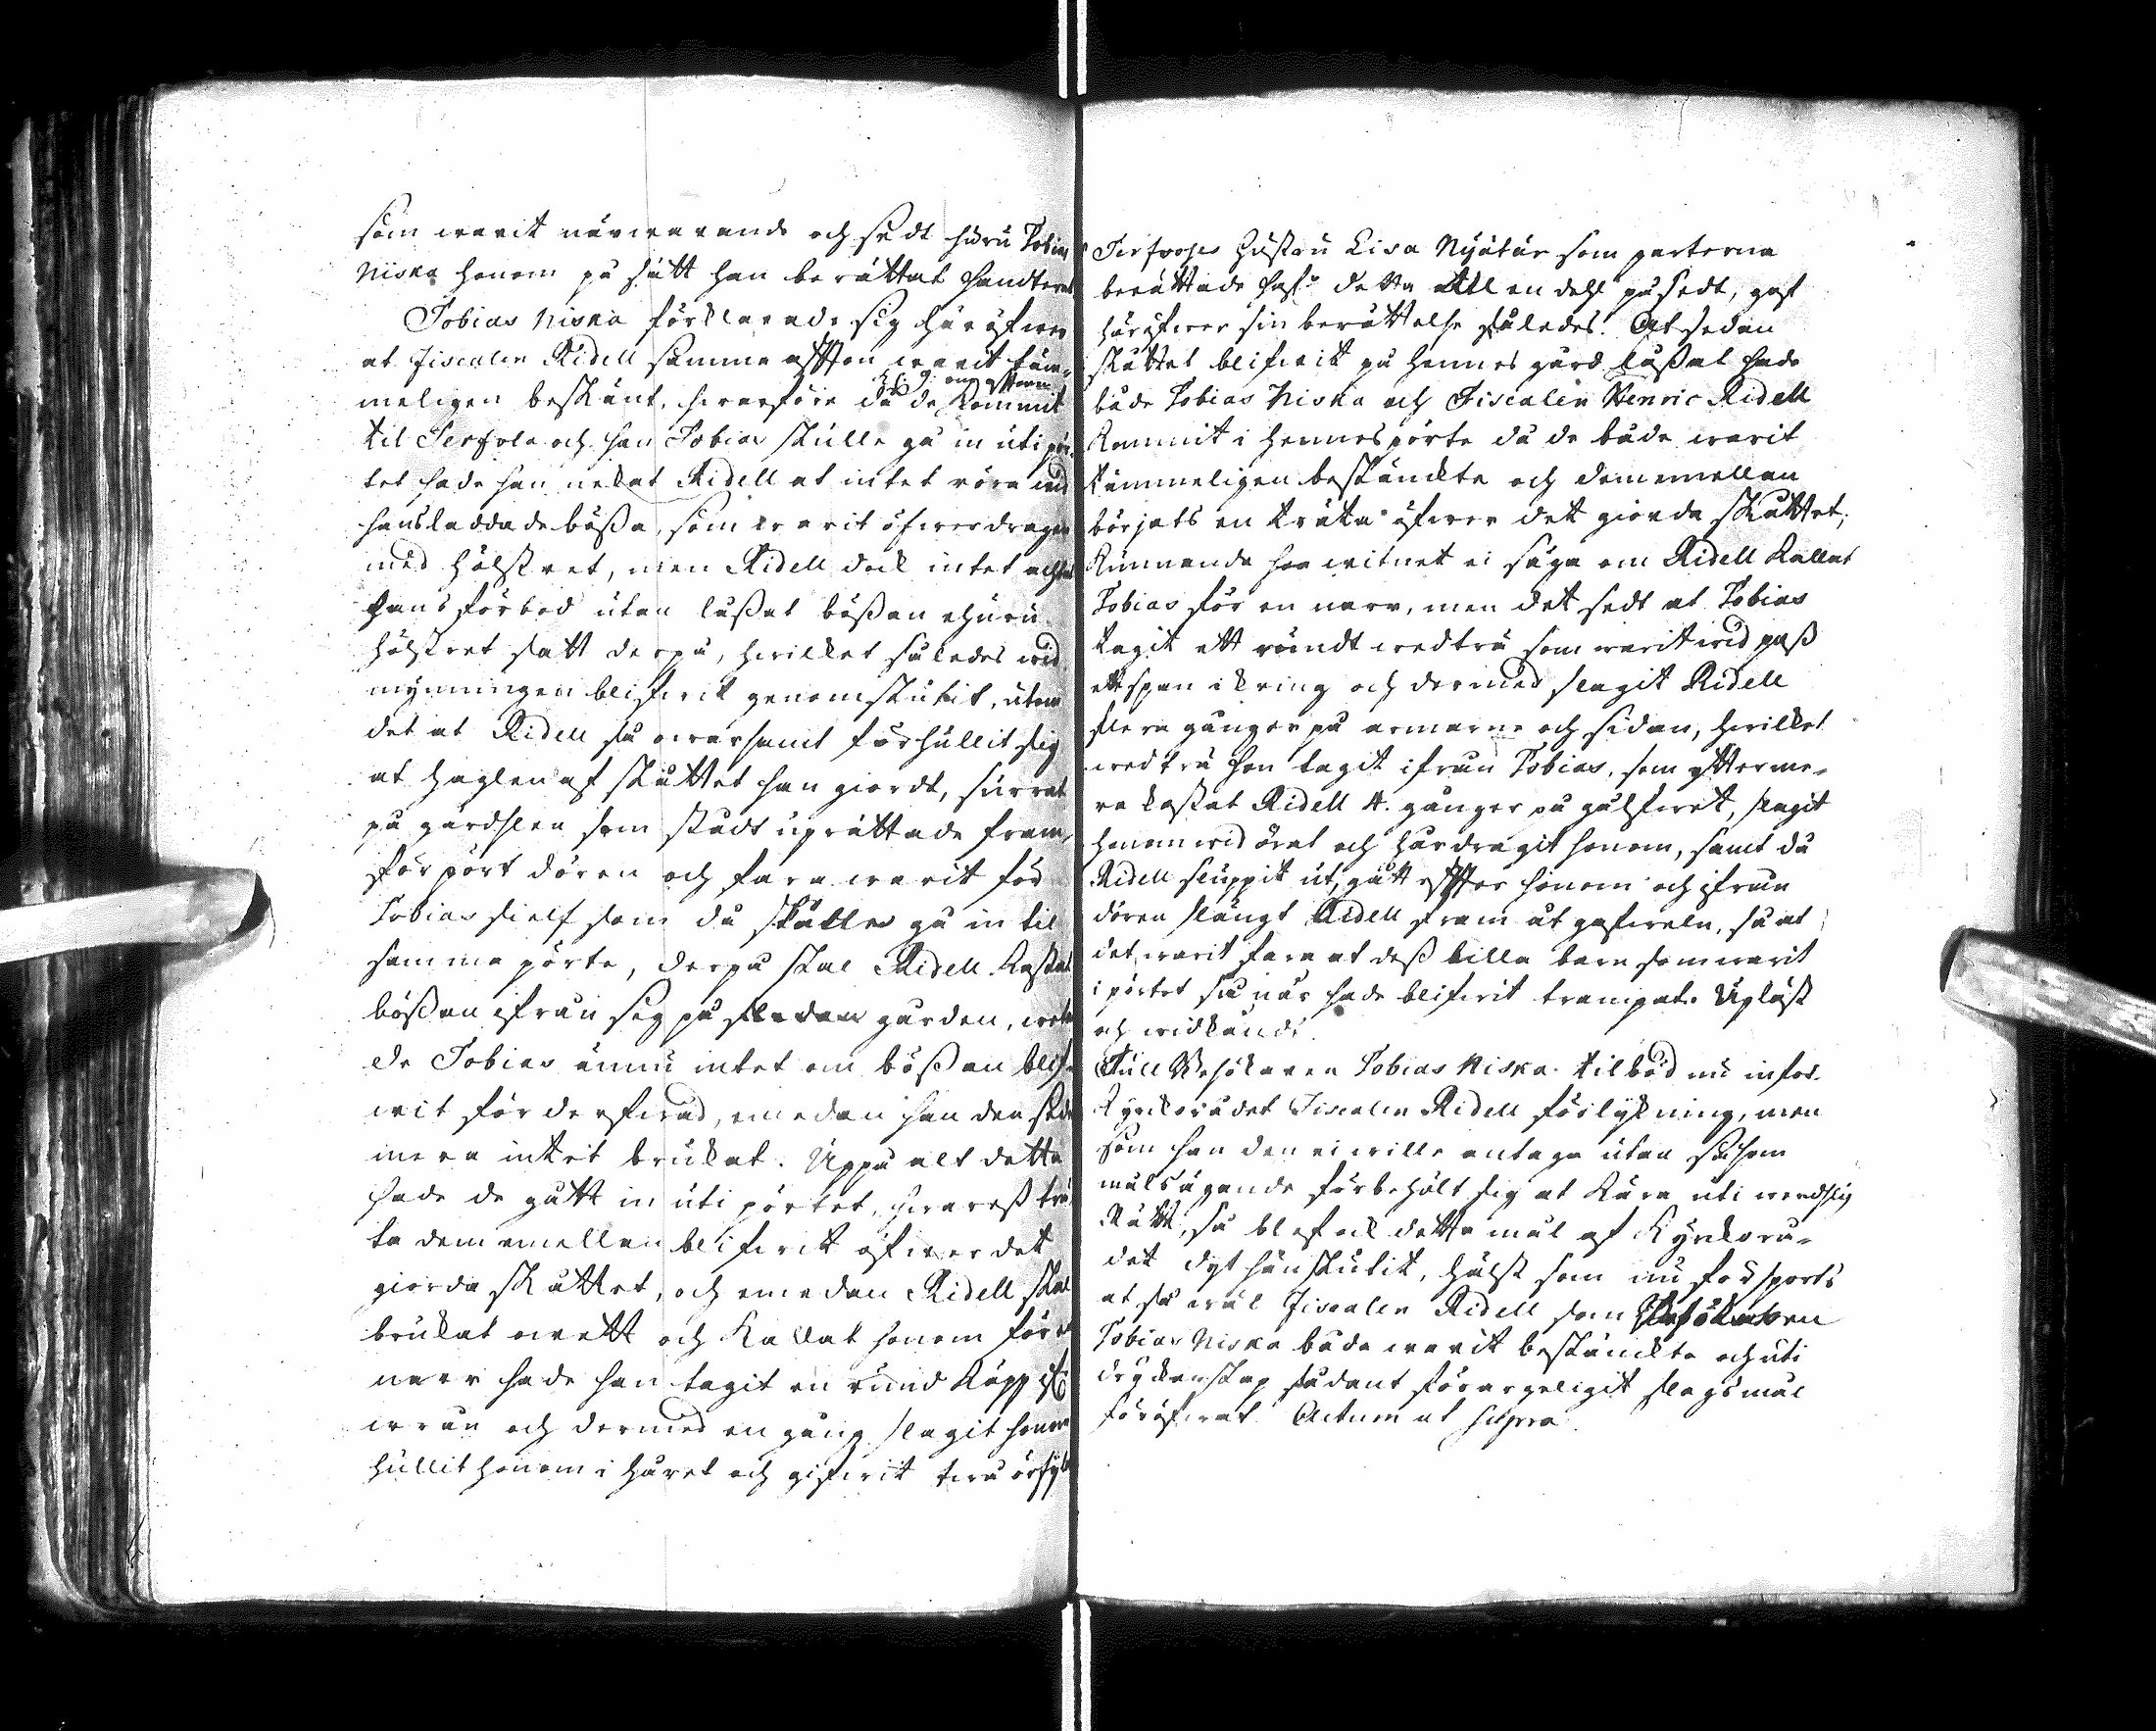 som warit närwarande och sedt huru Tobias
Niska honom på sätt han berättat handterat
Tobias Niska förklarade sig häröfwer
at Fiscalen Ridell samma afton warit täm-
meligen beskänkt, hwarföre då de kommit
kl: 9 om aftonen
til Terfola och han Tobias skulle gå in uti pör-
tet hade han nekat Ridell at intet röra wid
hans laddade bößa, som warit öfwerdragen
med hölstret, men Ridell dock intet achtat
hans förbod utan laßat bößan ehuru
hölstret satt derpå, hwilket således wid
mynningen blifwit genomskutit, utom
det at Ridell så owarsamt förhållit sig
at haglen af skåttet han giordt, surrat
på gärdslen som stådt uprättade fram-
för pört dören och fara warit för
Tobias sielf som då skulle gå in til
samma pörte, derpå skal Ridell kastat
bößan ifrån sig på gården, wete
de Tobias ännu intet om bößan blif-
wit förderfwad, emedan han den sedan
mera intet brukat. Uppå alt detta
hade de gått in uti pörtet, hwarest trä-
ta dem emellan blifwit öfwer det
giorda skåttet, och emedan Ridell skal
brukat owett och kallat honom för en
narr hade han tagit en rund käpp ifrån
wrån och dermed en gång slagit honom
hållit honom i håret och gifwit twå örfilar
Terfwoses hustru Lisa Nyätär som parterna
berättade haf:r detta till en dehl påsedt, gaf
häröfwer sin berättelse således: At sedan
skåttet blifwit på hennes gård laßat hade
både Tobias Niska och Fiscalen Henric Ridell
kommit i hennes pörte då de både warit
tämmeligen beskänckte och dem emellan
börjats en träta öfwer dett giorda skåttet;
kunnande hon witnet ei säga om Ridell kallat
Tobias för en narr, men det sedt at Tobias
tagit ett rundt wedträ som warit wid paß
ett span ikring och dermed slagit Ridell
flera gånger på armarne och sidan, hwilket
wedträ hon tagit ifrån Tobias, som ytterme-
ra kastat Ridell 4. gånger på gålfwet, slagit
honom wid örat och hårdragit honom, samt då
Ridell sluppit ut, gått efter honom och ifrån
dören slängt Ridell fram åt gafweln, så at
det warit fara at deß lilla barn som warit
i pörtet så när hade blifwit trampat. Upläst
och widkänd.
Tull Besökaren Tobias Niska tilböd nu inför
Kyrkorådet Fiscalen Ridell förlikning, men
som han den ei wille antaga utan såsom
målsägande förbehölt sig at kära uti werdslig
Rätt, så blef ock detta mål af Kyrckorå-
det dyt hänskutit, hälst som nu försports
at så wäl Fiscalen Ridell som Besökaren
Tobias Niska båda warit beskänckta och uti
dryckenskap sådant förargeligit slagsmål
föröfwat. Actum ut supra.